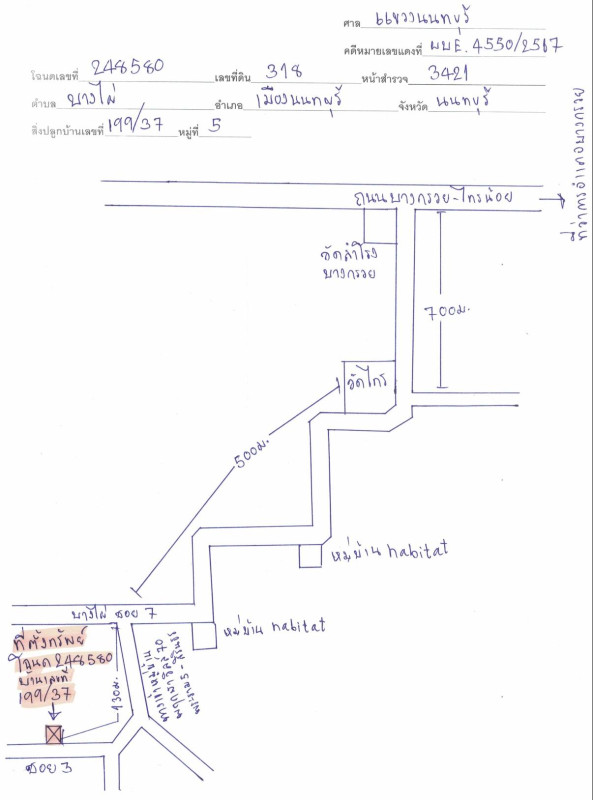 ศาล แขวงนนทบุรี
คดีหมายเลขแดงที่ ผบE. 4550/2567
โฉนดเลขที่ 248580 เลขที่ดิน 318 หน้าสำรวจ 3421
ตำบล บางไผ่ อำเภอ เมืองนนทบุรี จังหวัด นนทบุรี
สิ่งปลูกบ้านเลขที่ 199/37 หมู่ที่ 5
ที่ว่าการอำเภอบางกรวย
ถนนบางกรวย-ไทรน้อย
วัดสำโรง
บางกรวย
700ม.
วัดไทร
500ม.
หมู่บ้าน habitat
บางไผ่ ซอย 7
หมู่บ้าน habitat
ที่ตั้งทรัพย์
โฉนด 248580
บ้านเลขที่
199/37
130ม.
ซอย 3